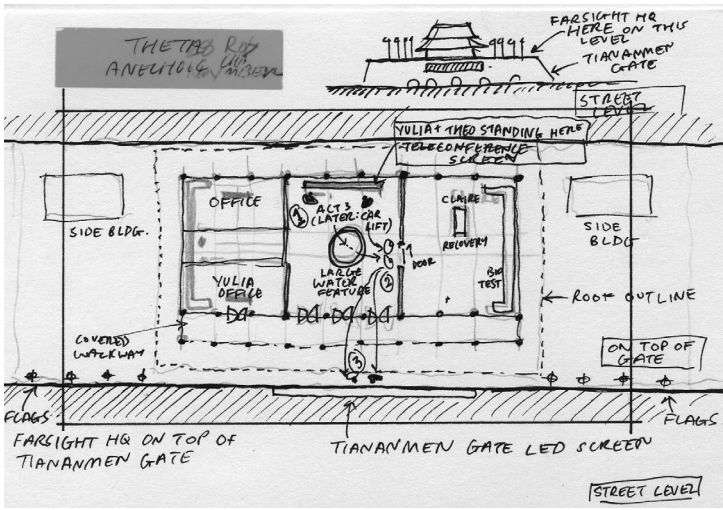 FARSIGHT HQ
HERE ON THIS
LEVEL
TIANANMEN
GATE
STREET
LEVEL
YULIA + THEO STANDING HERE
TELECONFERENCE
SCREEN
OFFICE
1
ACT 3
(LATER: CAR
LIFT)
CLAIRE
RECOVERY
SIDE BLDG.
SIDE
BLDG
DOOR
YULIA
OFFICE
LARGE
WATER
FEATURE
2
BIO
TEST
ROOF OUTLINE
COVERED
WALKWAY
3
ON TOP OF
GATE
FLAGS
FLAGS
FARSIGHT HQ ON TOP OF
TIANANMEN GATE
TIANANMEN GATE LED SCREEN
STREET LEVEL